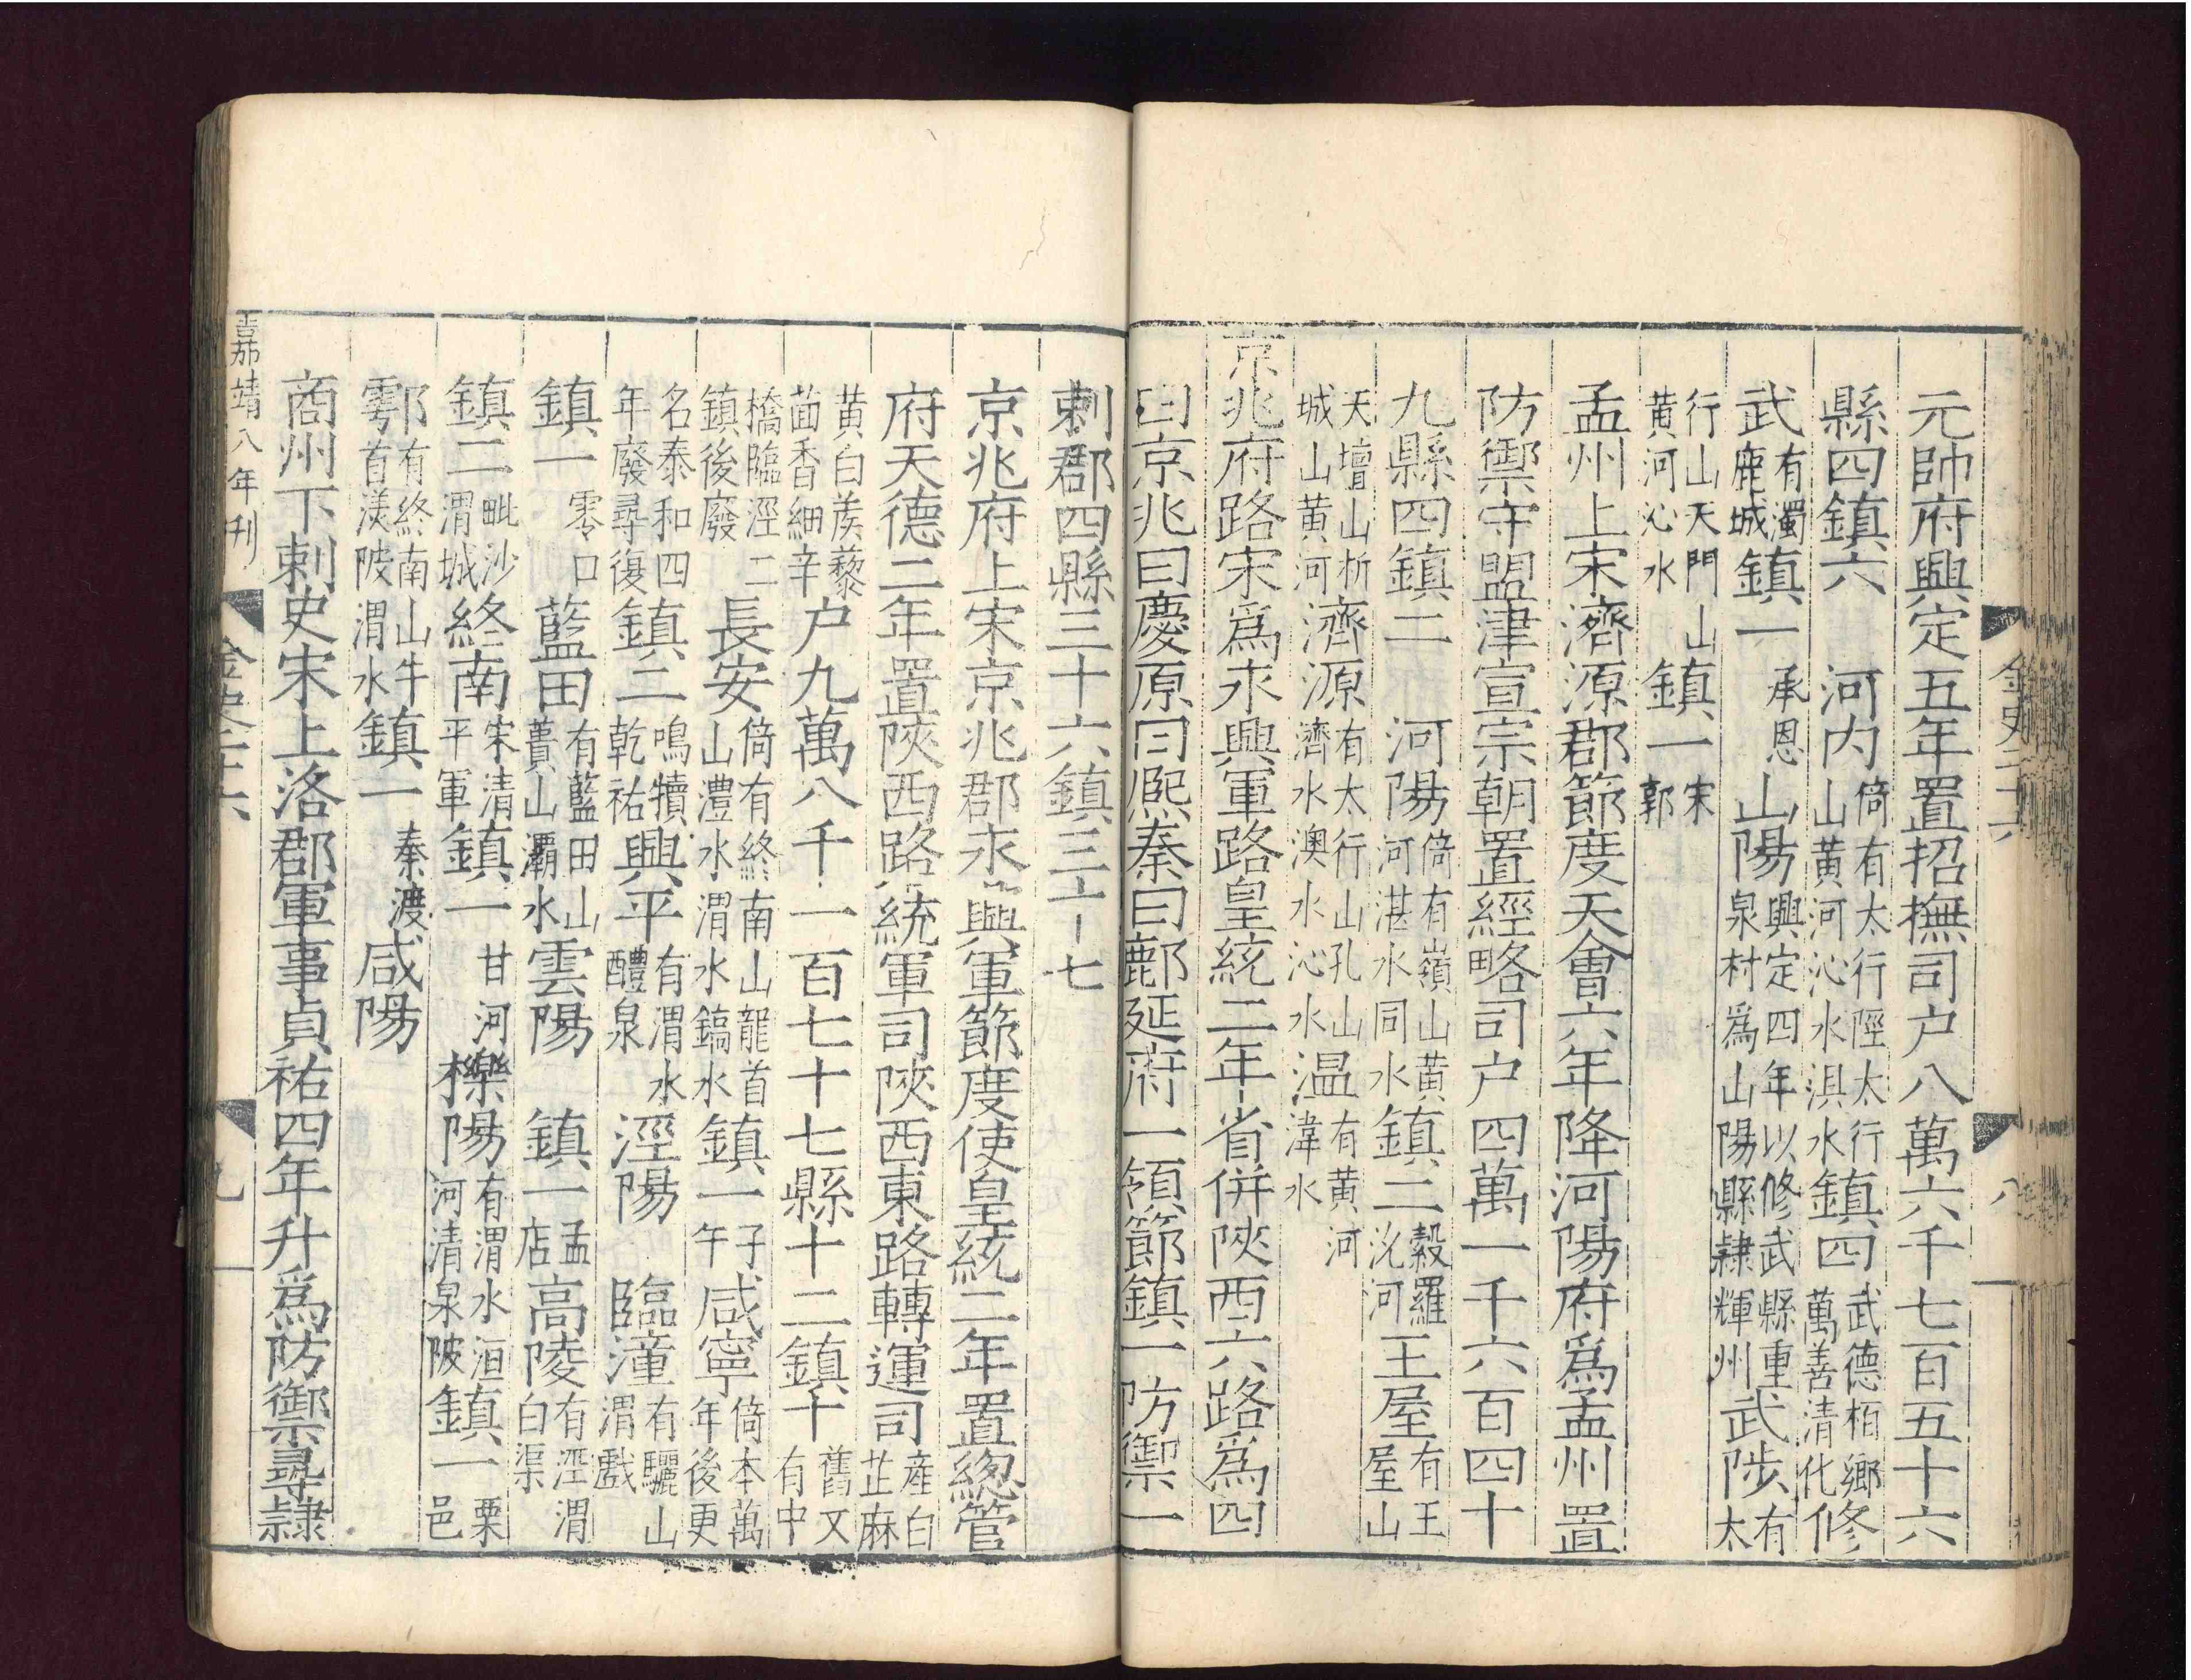 元帥府興定五年置招撫司户八萬六千七百五十六
縣四鎮六　河内倚有太行陘太行山黄河沁水淇水鎮四武德柏鄉萬善清化修
武有濁鹿城鎮一承恩山陽興定四年以修武縣重泉村爲山陽縣隷輝州武陟有太
行山天門山黄河沁水鎮一宋郭
孟州上宋濟源郡節度天會六年降河陽府爲孟州置
防禦守盟津宣宗朝置經略司户四萬一千六百四十
九縣四鎮二　河陽倚有嶺山黄河湛水同水鎮二穀羅沇河王屋有王屋山
天壇山析城山黄河濟源有太行山孔山濟水溴水沁水温有黄河漳水
京兆府路宋爲永興軍路皇統二年省併陝西六路爲四
曰京兆曰慶原曰熙秦曰鄜延府一領節鎮一防禦一
金史二十六
八
刺郡四縣三十六鎮三十七
京兆府上宋京兆郡永興軍節度使皇統二年置緫管
府天德二年置陝西路統軍司陝西東路轉運司産白芷麻
黄白蒺藜茴香細辛户九萬八千一百七十七縣十二鎮十舊又有中
橋臨涇二鎮後廢長安倚有終南山龍首山灃水渭水鎬水鎮一子午咸寧倚本萬年後更
名泰和四年廢尋復鎮二鳴犢乾祐興平有渭水醴泉涇陽　臨潼有驪山渭戲
鎮一零口藍田有藍田山蕢山灞水雲陽　鎮一孟店高陵有涇渭白渠
鎮二毗沙渭城終南宋清平軍鎮一甘河櫟陽有渭水沮河清泉陂鎮一栗邑
鄠有終南山牛首渼陂渭水鎮一秦渡咸陽
商州下刺史宋上洛郡軍事貞祐四年升爲防禦尋隷
嘉靖八年刋
金史二十六
九